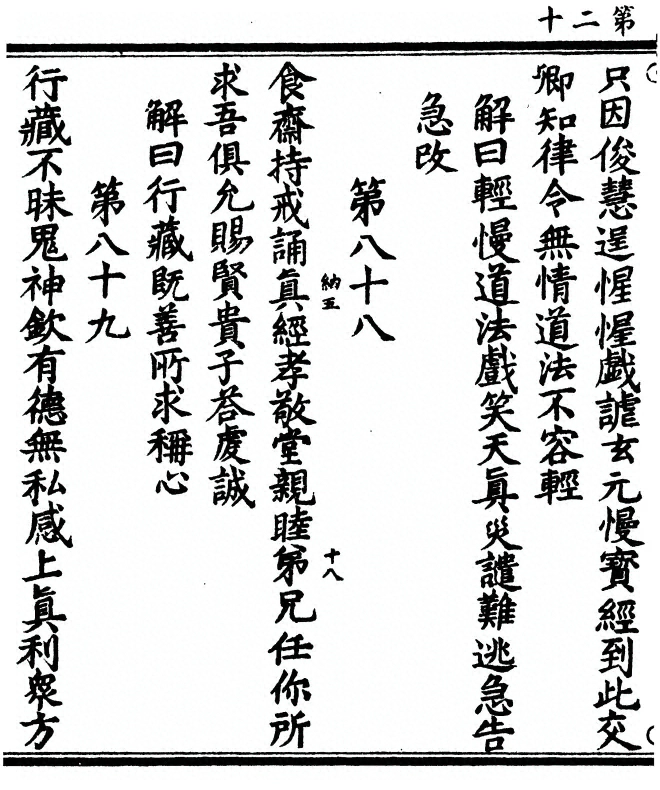 第二十
只因俊慧逞惺惺戯謔玄元慢寳經到此交
卿知律令無情道法不容輕
解曰輕慢道法戲笑天眞災譴難逃急告
急改
第八十八
納五
十八
食齋持戒誦眞經孝敬堂親睦弟兄任你所
求吾俱允賜賢貴子荅虔誠
解曰行藏既善所求稱心
第八十九
行藏不昧鬼神欽有德無私感上眞利衆方